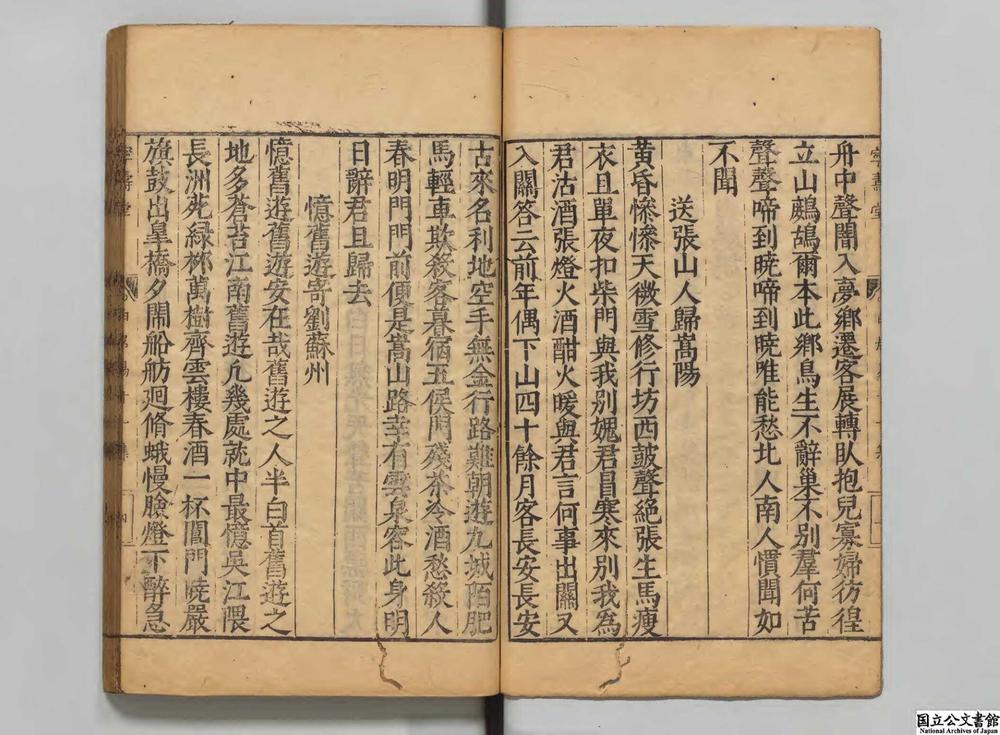 舟中聲聞入夢鄉遷客展轉臥抱兒寡婦彷徨
立山鷓鴣爾本此鄉鳥生不辭巢不別羣何苦
聲聲啼到曉啼到曉唯能愁北人南人慣聞如
不聞
送張山人歸嵩陽
黃昏慘慘天微雪修行坊西鼓聲絕張生馬瘦
衣且單夜扣柴門與我別媿君冒寒來別我為
君沽酒張燈火酒酣火暖與君言何事出關又
入關答云前年偶下山四十餘月客長安長安
古來名利地空手無金行路難朝遊九城陌肥
馬輕車欺殺客暮宿五侯門殘茶冷酒愁殺人
春明門門前便是嵩山路幸有雲泉容此身明
日辭君且歸去
憶舊遊寄劉蘇州
憶舊遊舊遊安在哉舊遊之人半白首舊遊之
地多蒼苔江南舊遊凢幾處就中最憶吳江隈
長洲苑綠桺萬樹齊雲樓春酒一杯閶門曉嚴
旗鼓出臯橋夕鬧船舫廻脩蛾慢臉燈下醉急
國立公文書館
National Archives of Japan